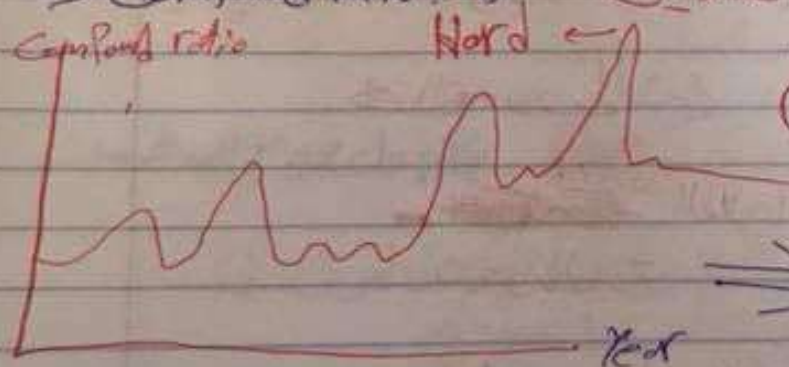 Compond ratio
Hord
Year